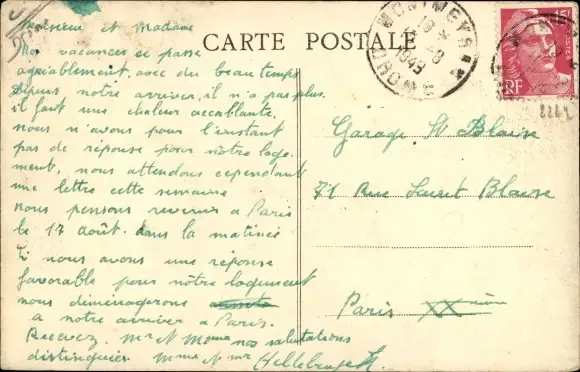 Monsieur et Madame
Mes vacances se passe
agréablement, avec du beau temps
depuis notre arriver, il n'a pas plus.
il fait une chaleur accablante.
nous n'avons pour l'instant
pas de réponse pour nôtre loge-
ment, nous attendons cependant
une lettre cette semaine
nous pensons revenir a Paris
le 17 août. dans la matinée
Si nous avons une réponse
favorable pour nôtre logement
nous déménagerons
a notre arriver a Paris.
Recevez. Mr N Mme nos salutations
distinguées. Mme N Mr
CARTE POSTALE
MONTMEYRAN
DROME
1949
15F
RF
2262
Garage St Blaise
71 Rue Saint Blaise
Paris XXème